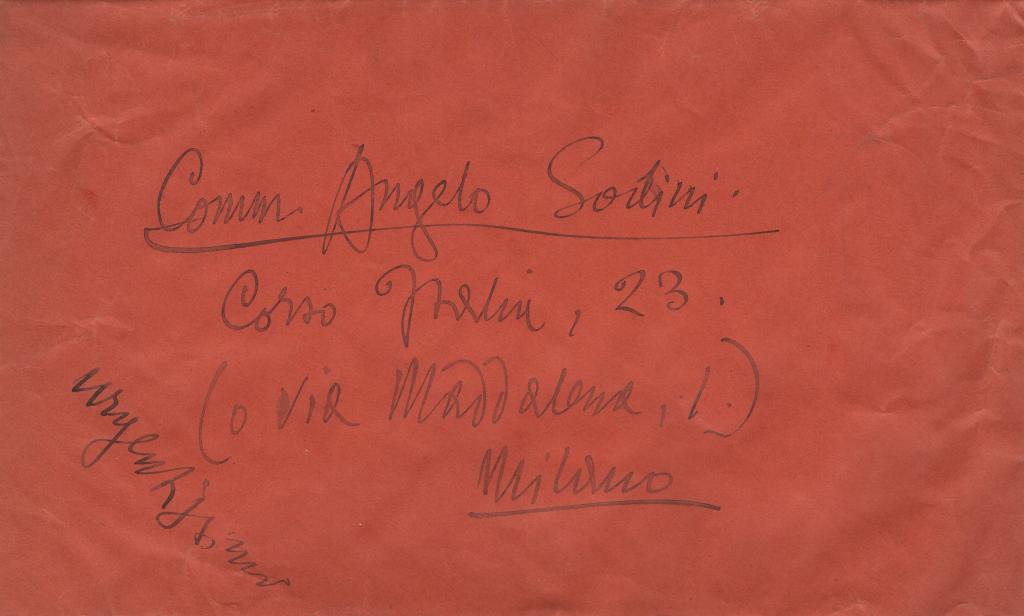 Comm. Angelo Sodini.
Corso Italia, 23.
(o via Maddalena, 1.)
Milano
urgentissimo